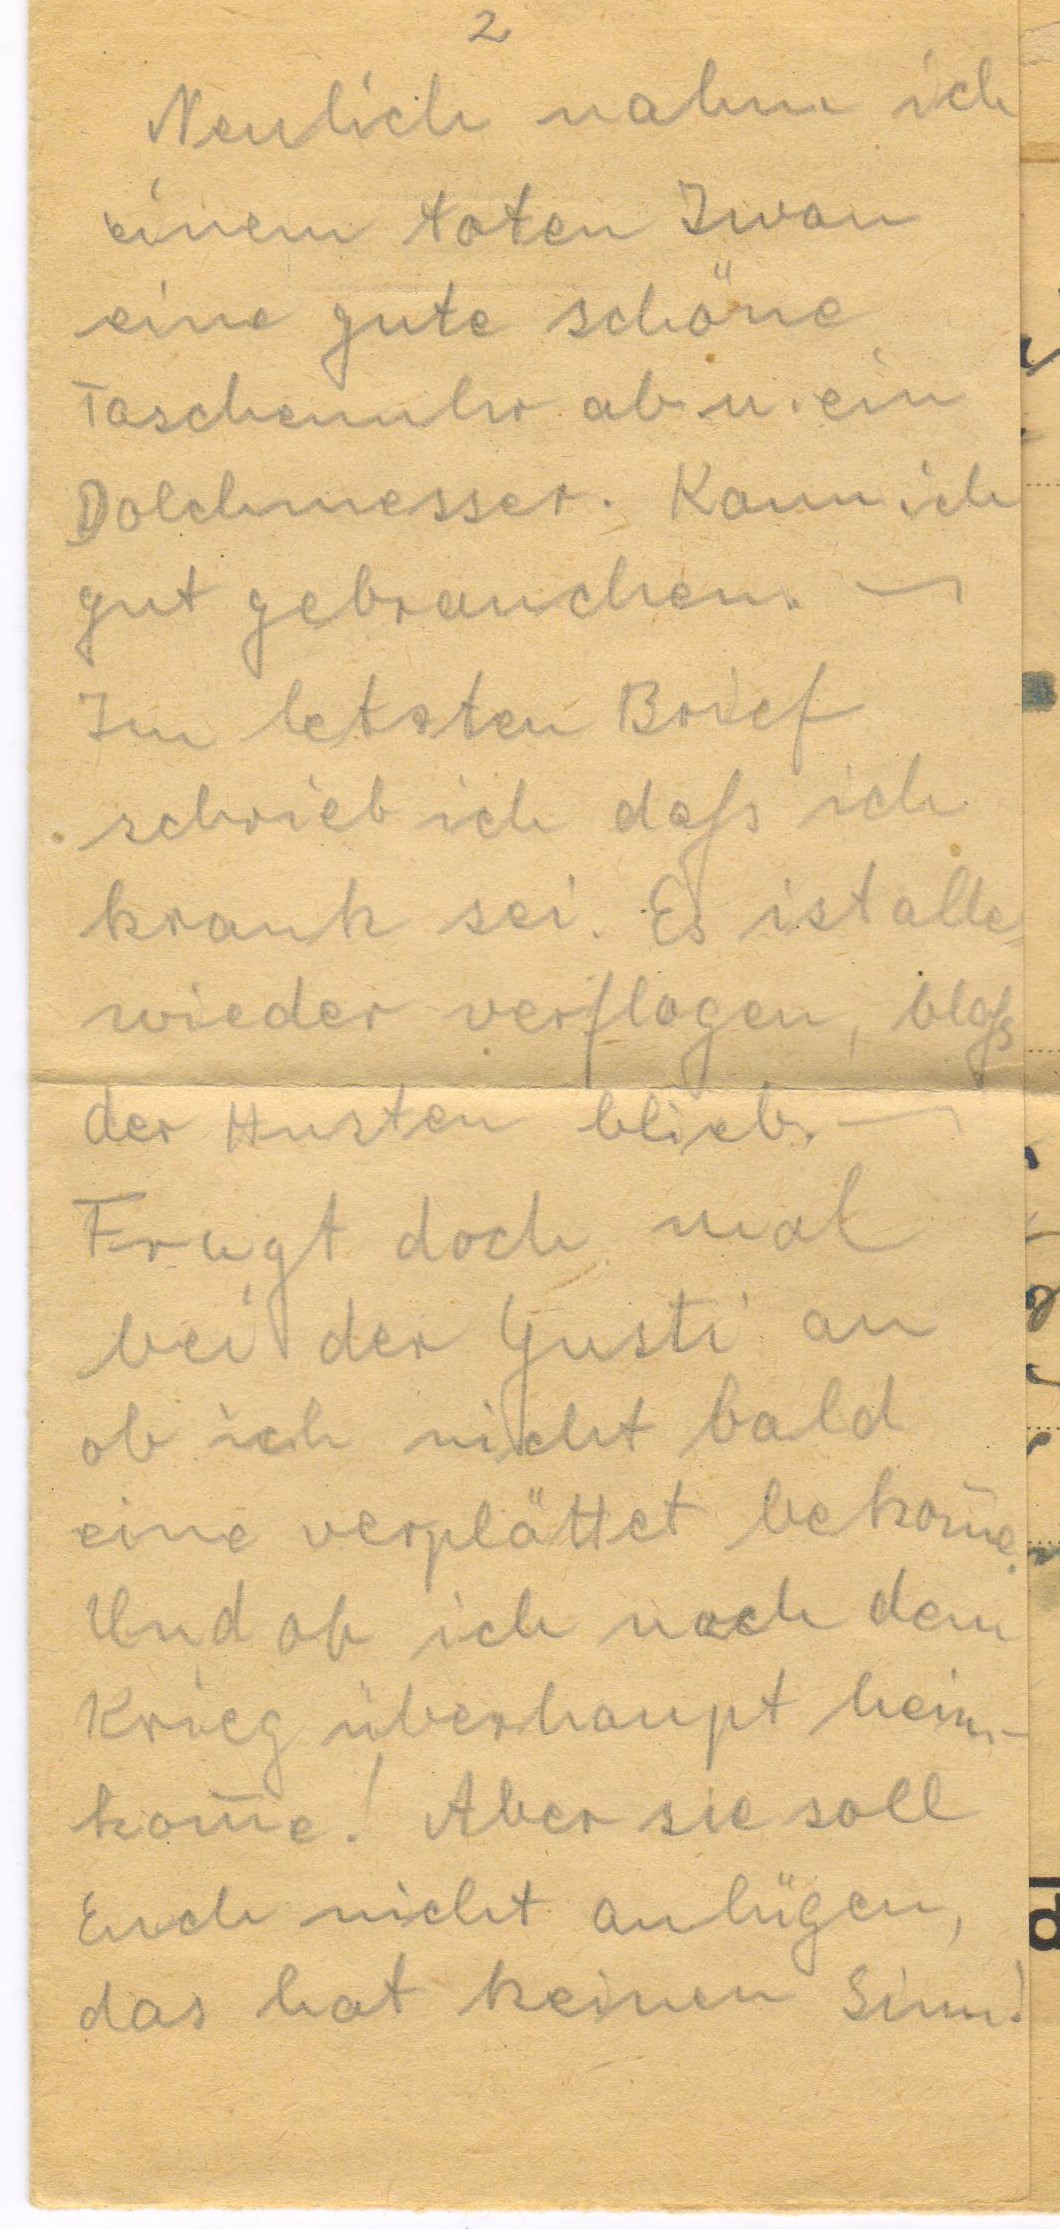 2
Neulich nahm ich
einem toten Iwan
eine gute schöne
Taschenuhr ab u. ein
Dolchmesser. Kann ich
gut gebrauchen. —
Im letzten Brief
schrieb ich daß ich
krank sei. Es ist alles
wieder verflogen, bloß
der Husten blieb. —
Frugt doch mal
bei der Gusti an
ob ich nicht bald
eine verplättet bekom̄e.
Und ob ich nach dem
Krieg überhaupt heim-
kom̄e! Aber sie soll
Euch nicht anlügen,
das hat keinen Sinn!